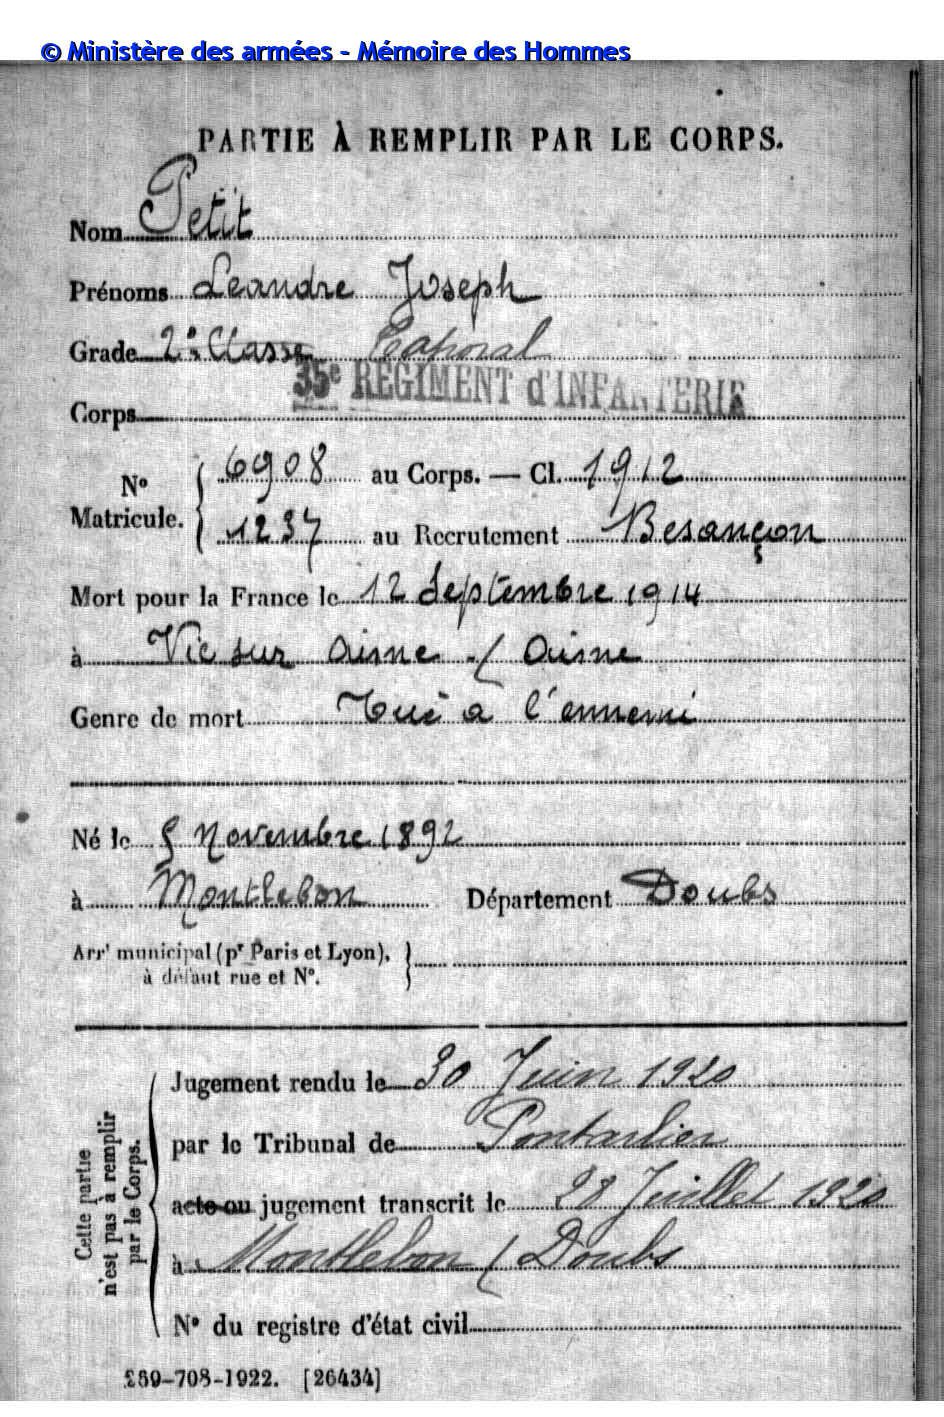 © Ministère des armées - Mémoire des Hommes
PARTIE À REMPLIR PAR LE CORPS.
Nom Petit
Prénoms Leandre Joseph
Grade 2e Classe Caporal
35e RÉGIMENT d'INFANTERIE
Corps
No Matricule. { 6908 au Corps. — Cl. 1912
1237 au Recrutement Besançon
Mort pour la France le 12 Septembre 1914
à Vic sur Aisne / Aisne
Genre de mort Tué à l'ennemi
Né le 5 Novembre 1892
à Montlebon Département Doubs
Arrt municipal (pr Paris et Lyon),
à défaut rue et No.
Cette partie
n'est pas à remplir
par le Corps.
Jugement rendu le 30 Juin 1920
par le Tribunal de Pontarlier
acte ou jugement transcrit le 28 Juillet 1920
à Montlebon / Doubs
No du registre d'état civil
269-708-1922. [26434]